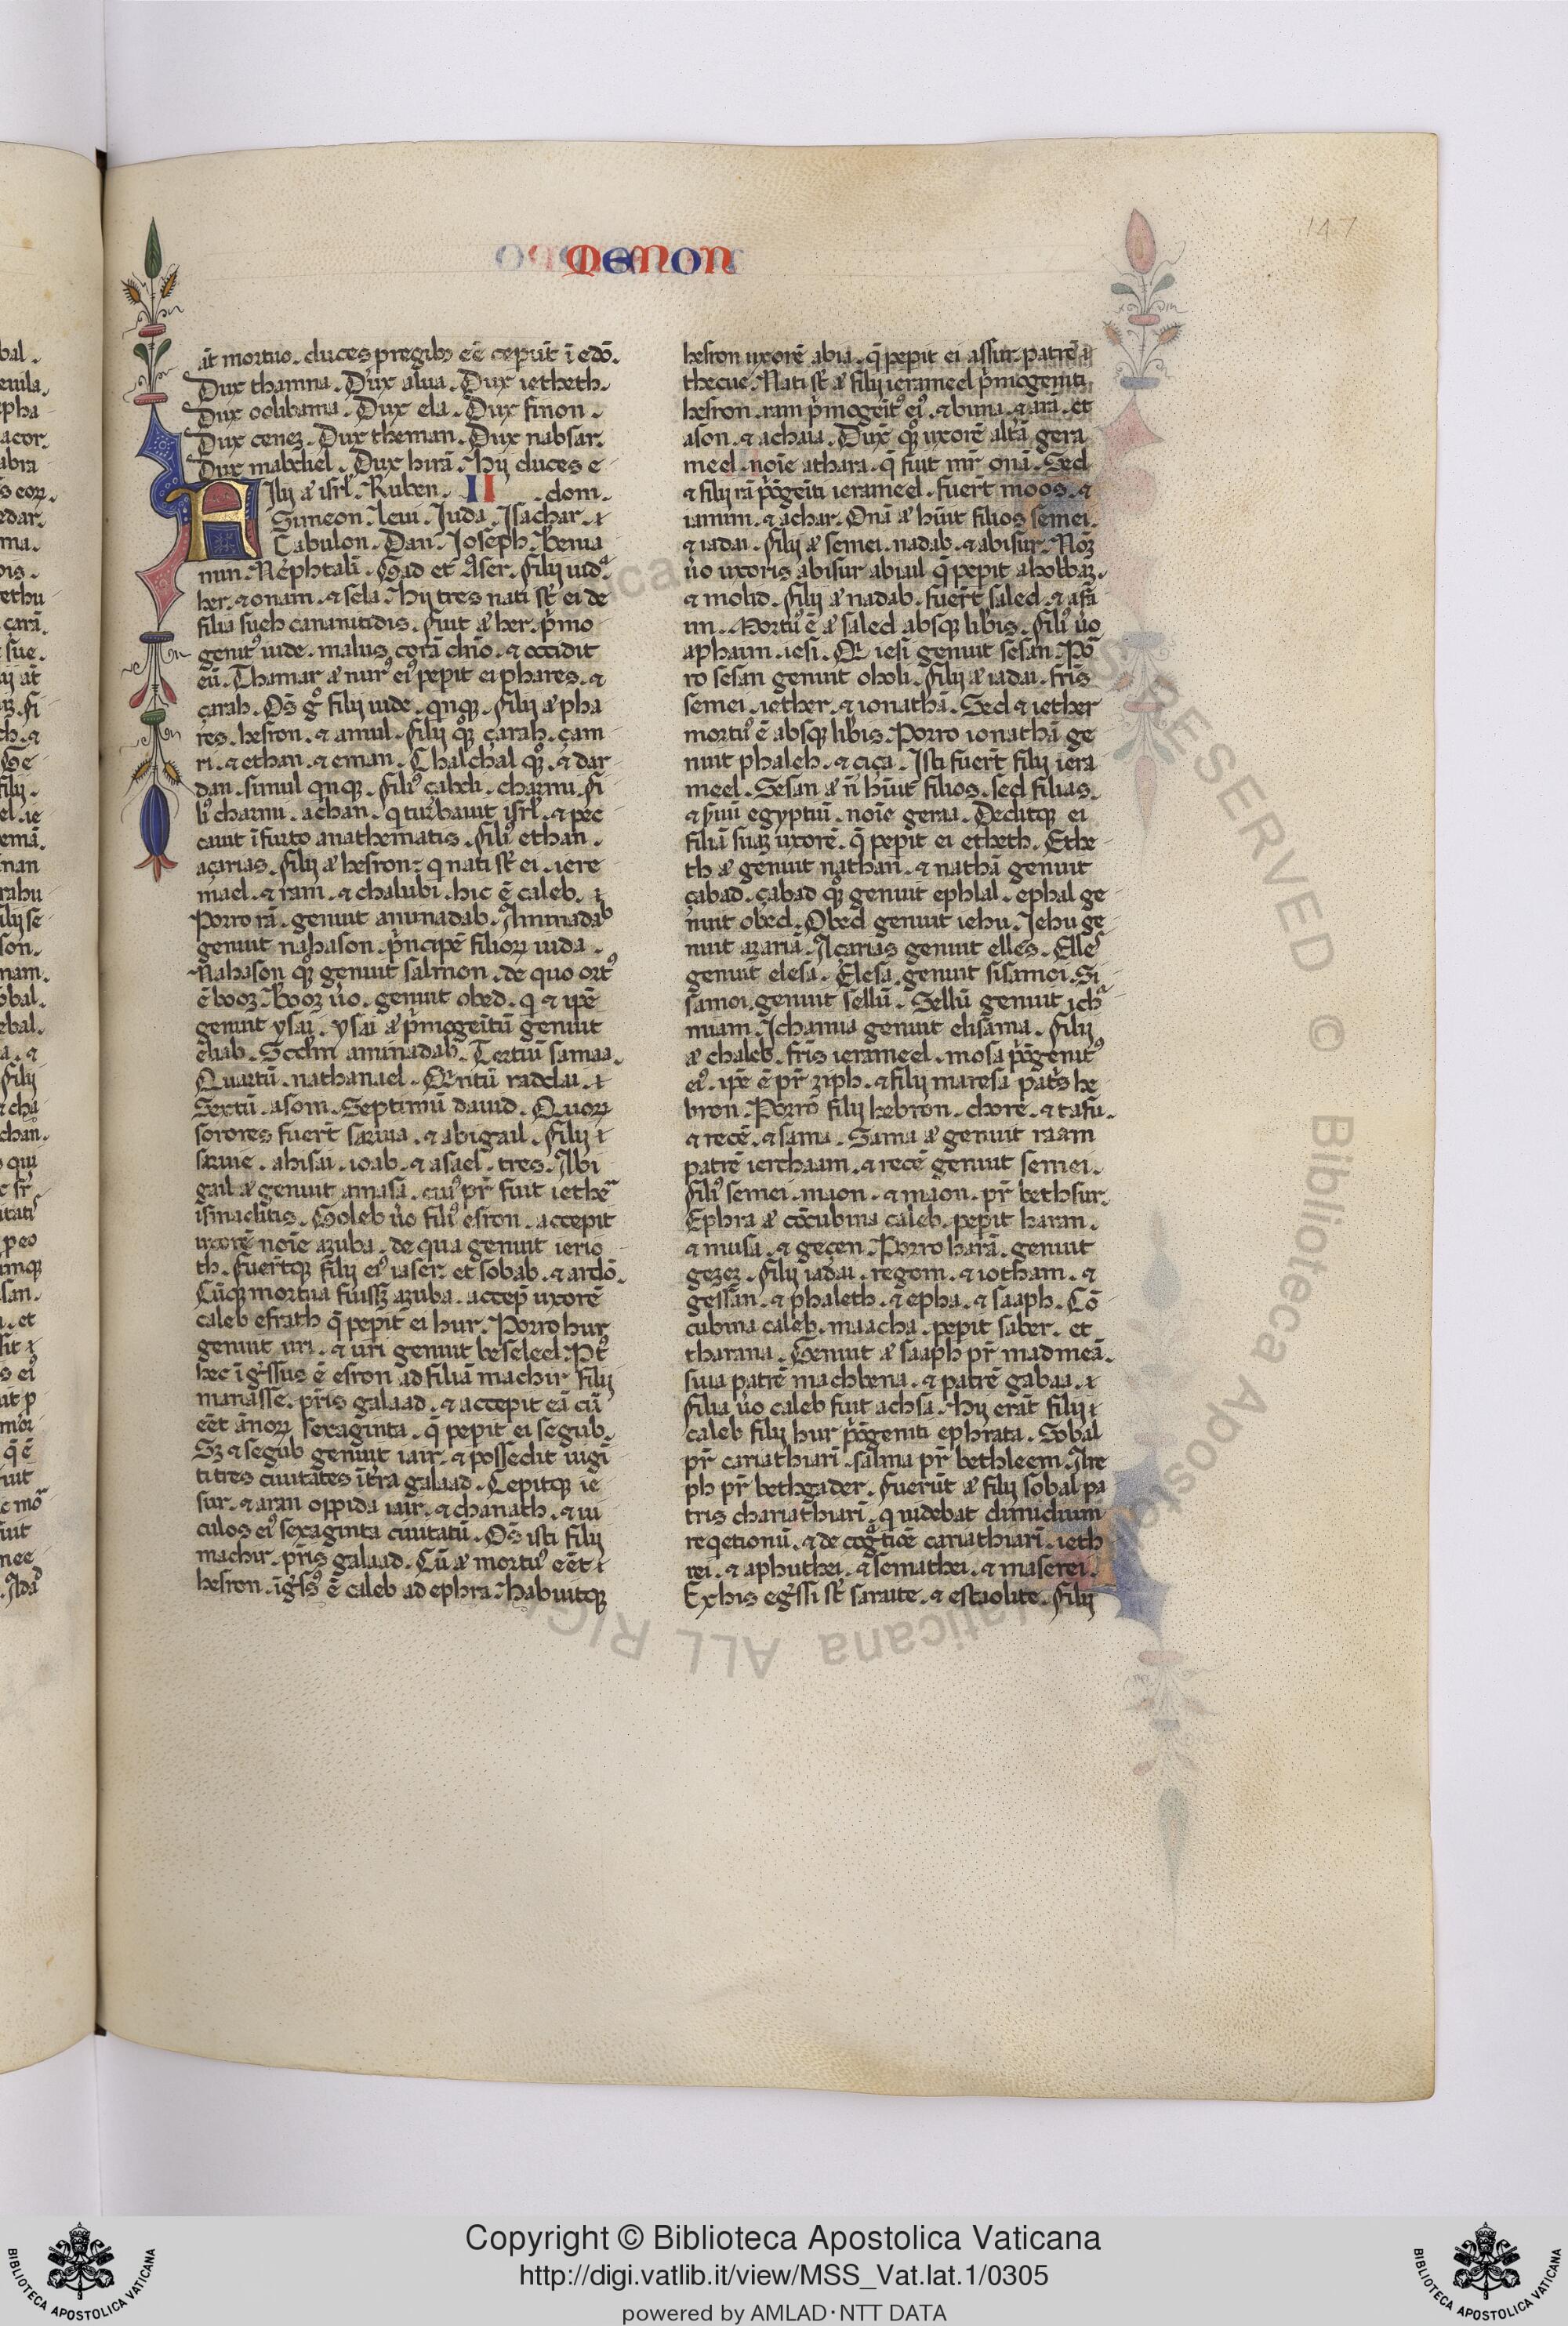 147
MENON
at mortuo. duces pregib; eē cepūt ī edō.
Dux thamna. Dux alua. Dux ietheth.
Dux oolibama. Dux ela. Dux finon.
Dux cenez. Dux theman. Dux nabsar.
Dux mabdiel. Dux hirā. hij duces e
Filij aē isrl. Ruben. II .dom.
Simeon. leui. Iuda. Isachar. et
Çabulon. Dan. Ioseph. Benia
min. Nephtalī. Gad et Aser. filij iuda.
her. et onam. et sela. hij tres nati sūt ei de
filia sueh cananitidis. fuit aē her. p̄mo
genitꝰ iude. malus corā dn̄o. et occidit
eū. Thamar aē nurꝰ eiꝰ pepit ei phares. et
çarah. Oēs gͦ filij iude. qnqꝫ. filij aē pha
res. hesron. et amul. filij qͦqꝫ çarah. çam
ri. et ethan. et eman. Chalchal qͦqꝫ. et dar
dan. simul qnqꝫ. filiꝰ çabdi. charmi. fi
liꝰ charmi. achan. q turbauit isrl. et pec
cauit ī furto anathematis. filiꝰ ethan.
açarias. filij aē hesron: q nati sūt ei. iere
mael. et ram. et chalubi. hic ē caleb. et
Porro rā. genuit aminadab. Aminadab
genuit nahason. p̄ncipē filioꝝ iuda.
Nahason qͦqꝫ genuit salmon. de quo ortꝰ
ē booz. Booz ůo. genuit obed. q et ip̄e
genuit ysai. ysai aē p̄mogeītū genuit
eliab. Scd̄m aminadab. Tertiū samaa.
Quartū. nathanael. Qntū raddai. et
Sextū. asom. Septimū dauid. Quoꝝ
sorores fuert̄ saruia. et abigail. filij et
saruie. abisai. ioab. et asael. tres. Abi
gail aē genuit amasa. cuiꝰ pr̄ fuit iethe
ismaelitis. Goleb ůo filiꝰ esron. accepit
uxorē noīe azuba. de qua genuit ierio
th. fuert̄qꝫ filij eiꝰ iaser. et sobab. et ardō.
Cūqꝫ mortua fuissꝫ azuba. accep̄ uxorē
caleb efrath q̄ pepit ei hur. Porro hur
genuit uri. et uri genuit beseleel. Ptꝰ
hec īgr̄ssus ē esron ad filiā machir filij
manasse. pr̄is galaad. et accepit eā cū
eēt ānoꝝ sexaginta. q̄ pepit ei segub.
Sꝫ et segub genuit iair. et possedit uigī
ti tres ciuitates ī tr̄a galaad. Cepitqꝫ ie
sur. et aran oppida iair. et chanath. et ui
culos eiꝰ sexaginta ciuitatū. Oēs isti filij
machir. pr̄is galaad. Cū aē mortuꝰ eēt et
hesron. īgr̄ssꝰ ē caleb ad ephra. habuitqꝫ
hesron uxorē abia. q̄ pepit ei assur. patrē et
thecue. Nati sūt aē filij ierameel p̄mogeniti
hesron. ram p̄mogeītꝰ eiꝰ. et buna. et arā. et
ason. et achaia. Duxͭ qͦqꝫ uxorē altā gera
meel. noīe athara. q̄ fuit mr̄ onā. Sed
et filij rā p̄ogeīti ierameel. fuert̄ moos. et
iamin. et achar. Onā aē hūit filios semei.
et iadai. filij aē semei. nadab. et abisur. Noꝫ
ůo uxoris abisur abiail q̄ pepit aholbaz.
et molid. filij aē nadab. fuert̄ saled. et afa
im. Mortuꝰ ē aē saled absqꝫ lib̄is. filiꝰ ůo
aphaim. iesi. Qi iesi genuit sesan. Po
ro sesan genuit oholi. filij aē iadai. fr̄is
semei. iether. et ionathā. Sed et iether
mortuꝰ ē absqꝫ lib̄is. Porro ionathā ge
nuit phaleh. et ciça. Isti fuert̄ filij iera
meel. Sesan aē n̄ hūit filios. sed filias.
et ꝑuū egyptiū. noīe geraa. Deditqꝫ ei
filiā suaꝫ uxorē. q̄ pepit ei etheth. Ethe
th aē genuit nathan. et nathā genuit
çabad. çabad qͦqꝫ genuit ephlal. ephal ge
nuit obed. Obed genuit iehu. Iehu ge
nuit azariā. Açarias genuit elles. Elles
genuit elesa. Elesa. genuit sisamoi. Si
samoi. genuit sellū. Sellū genuit icha
miam. Ichamia genuit elisama. filij
aē chaleb. fr̄is ierameel. mosa p̄ogenitꝰ
eiꝰ. ip̄e ē pr̄ ziph. et filij maresa pat̄s he
bron. Porrō filij hebron. chore. et tafu.
et recē. et sama. Sama aē genuit raam
patrē ierchaam. et recē genuit semei.
filiꝰ semei. maon. et maon. pr̄ bethsur.
Ephra aē cōcubina caleb. pepit haran.
et musa. et geçen. Porro harā. genuit
gezez. filij iadai. regom. et iotham. et
gessan. et phaleth. et epha. et saaph. Cō
cubina caleb. maacha. pepit saber. et
tharana. Genuit aē saaph pr̄ madmeā.
suia patrē machbena. et patrē gabaa. et
filia ůo caleb fuit achsa. hij erāt filij et
caleb filij hur p̄ogeniti ephrata. Sobal
pr̄ cariathiarī. salma pr̄ bethleem. Are
ph pr̄ bethgader. fuerūt aē filij sobal pa
tris chariathiarī. q uidebat dimidium
reqetionū. et de cogͣtiōe cariathiarī. ieth
rei. et aphuthei. et semathei. et maserei.
Ex his egr̄ssi sūt saraite. et estaolite. filij
Copyright © Biblioteca Apostolica Vaticana
http://digi.vatlib.it/view/MSS_Vat.lat.1/0305
powered by AMLAD·NTT DATA
BIBLIOTECA APOSTOLICA VATICANA
BIBLIOTECA APOSTOLICA VATICANA